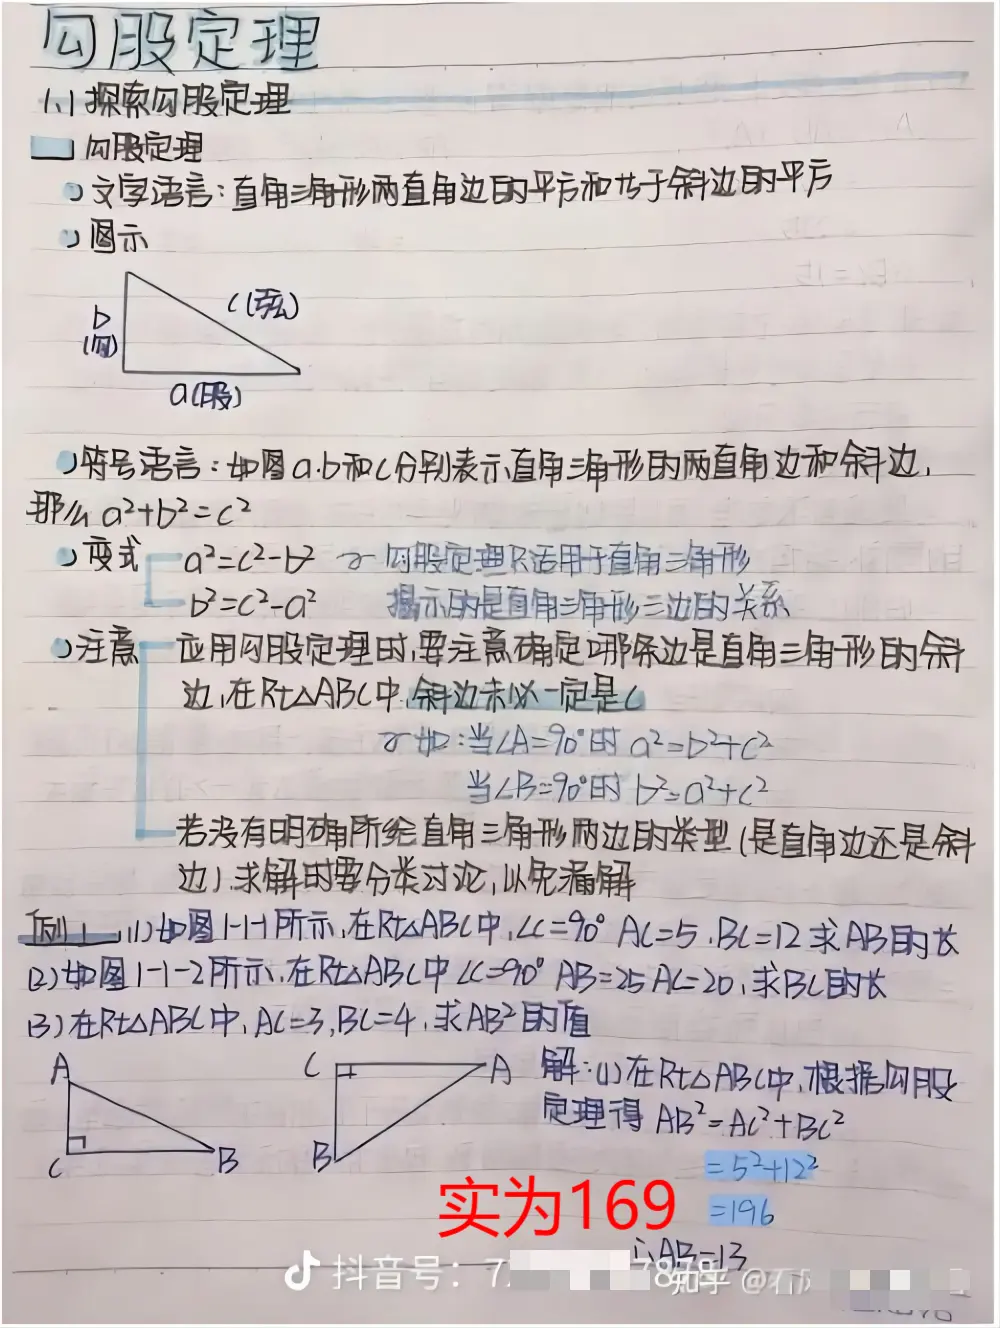 勾股定理
1.1 探索勾股定理
勾股定理
文字语言:直角三角形两直角边的平方和等于斜边的平方
图示
b
(勾)
c(弦)
a(股)
符号语言:如图a.b和c分别表示直角三角形的两直角边和斜边,
那么a²+b²=c²
变式 a²=c²-b² 勾股定理只适用于直角三角形
b²=c²-a² 揭示的是直角三角形三边的关系
注意 应用勾股定理时,要注意确定哪条边是直角三角形的斜
边,在Rt△ABC中,斜边未必一定是c
如:当∠A=90°时 a²=b²+c²
当∠B=90°时 b²=a²+c²
若没有明确所给直角三角形两边的类型(是直角边还是斜
边),求解时要分类讨论,以免漏解
例1 (1)如图1-1-1所示,在Rt△ABC中,∠C=90° AC=5,BC=12 求AB的长
(2)如图1-1-2所示,在Rt△ABC中 ∠C=90° AB=25 AC=20,求BC的长
(3)在Rt△ABC中,AC=3,BC=4,求AB²的值
A
C
B
C
A
B
解:(1)在Rt△ABC中,根据勾股
定理得 AB²=AC²+BC²
=5²+12²
=196
实为169
∴AB=13
抖音号:
知乎 @石